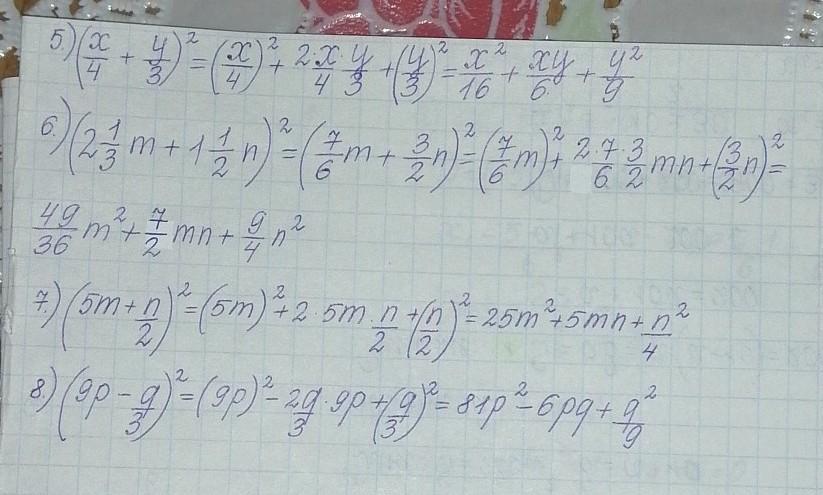 5.) (x/4 + y/3)² = (x/4)² + 2·x/4·y/3 + (y/3)² = x²/16 + xy/6 + y²/9
6.) (2 1/3 m + 1 1/2 n)² = (7/6 m + 3/2 n)² = (7/6 m)² + 2·7/6·3/2 mn + (3/2 n)² =
49/36 m² + 7/2 mn + 9/4 n²
7.) (5m + n/2)² = (5m)² + 2·5m·n/2 + (n/2)² = 25m² + 5mn + n²/4
8.) (9p - q/3)² = (9p)² - 2q/3·9p + (q/3)² = 81p² - 6pq + q²/9